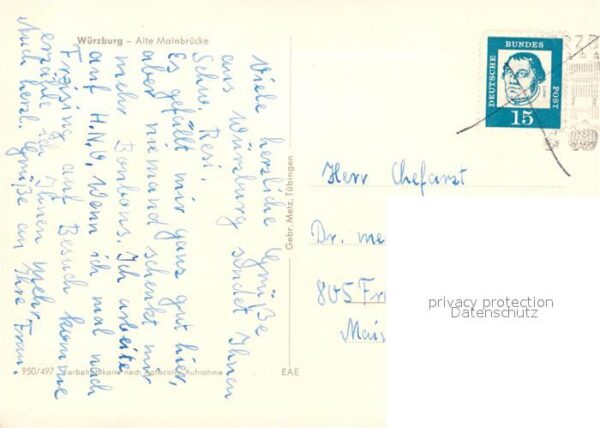 Würzburg – Alte Mainbrücke
Viele herzliche Grüße
aus Würzburg sendet Ihnen
Schw. Resi.
Es gefällt mir ganz gut hier,
aber niemand schenkt mir
mehr Bonbons. Ich arbeite
auf H.N.O. Wenn ich mal nach
Freising auf Besuch komme
erzähle ich Ihnen mehr.
Auch herzl. Grüße an Ihre Frau.
950/497 Farbphotokarte nach Agfacolor-Aufnahme
EAE
Gebr. Metz, Tübingen
DEUTSCHE
BUNDES
POST
15
Herr Chefarzt
Dr. me
805 Fre
Main
privacy protection
Datenschutz